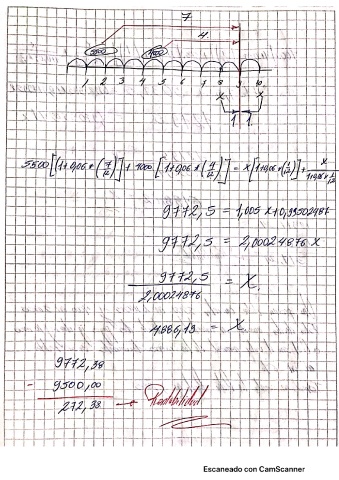 7
4
1 2 3 4 5 6 7 8 9 10
x x
1 1
5500[(1+0,06*(7/12)] + 4000[1+0,06*(4/12)] = x[1+0,06*(1/12)] + x/(1+0,06*1/12)
9772,5 = 1,005 x + 0,99502487
9772,5 = 2,00024876 x
9772,5 / 2,00024876 = X.
4886,13 = X.
9772,38
- 9500,00
272,38 → Rentabilidad
Escaneado con CamScanner